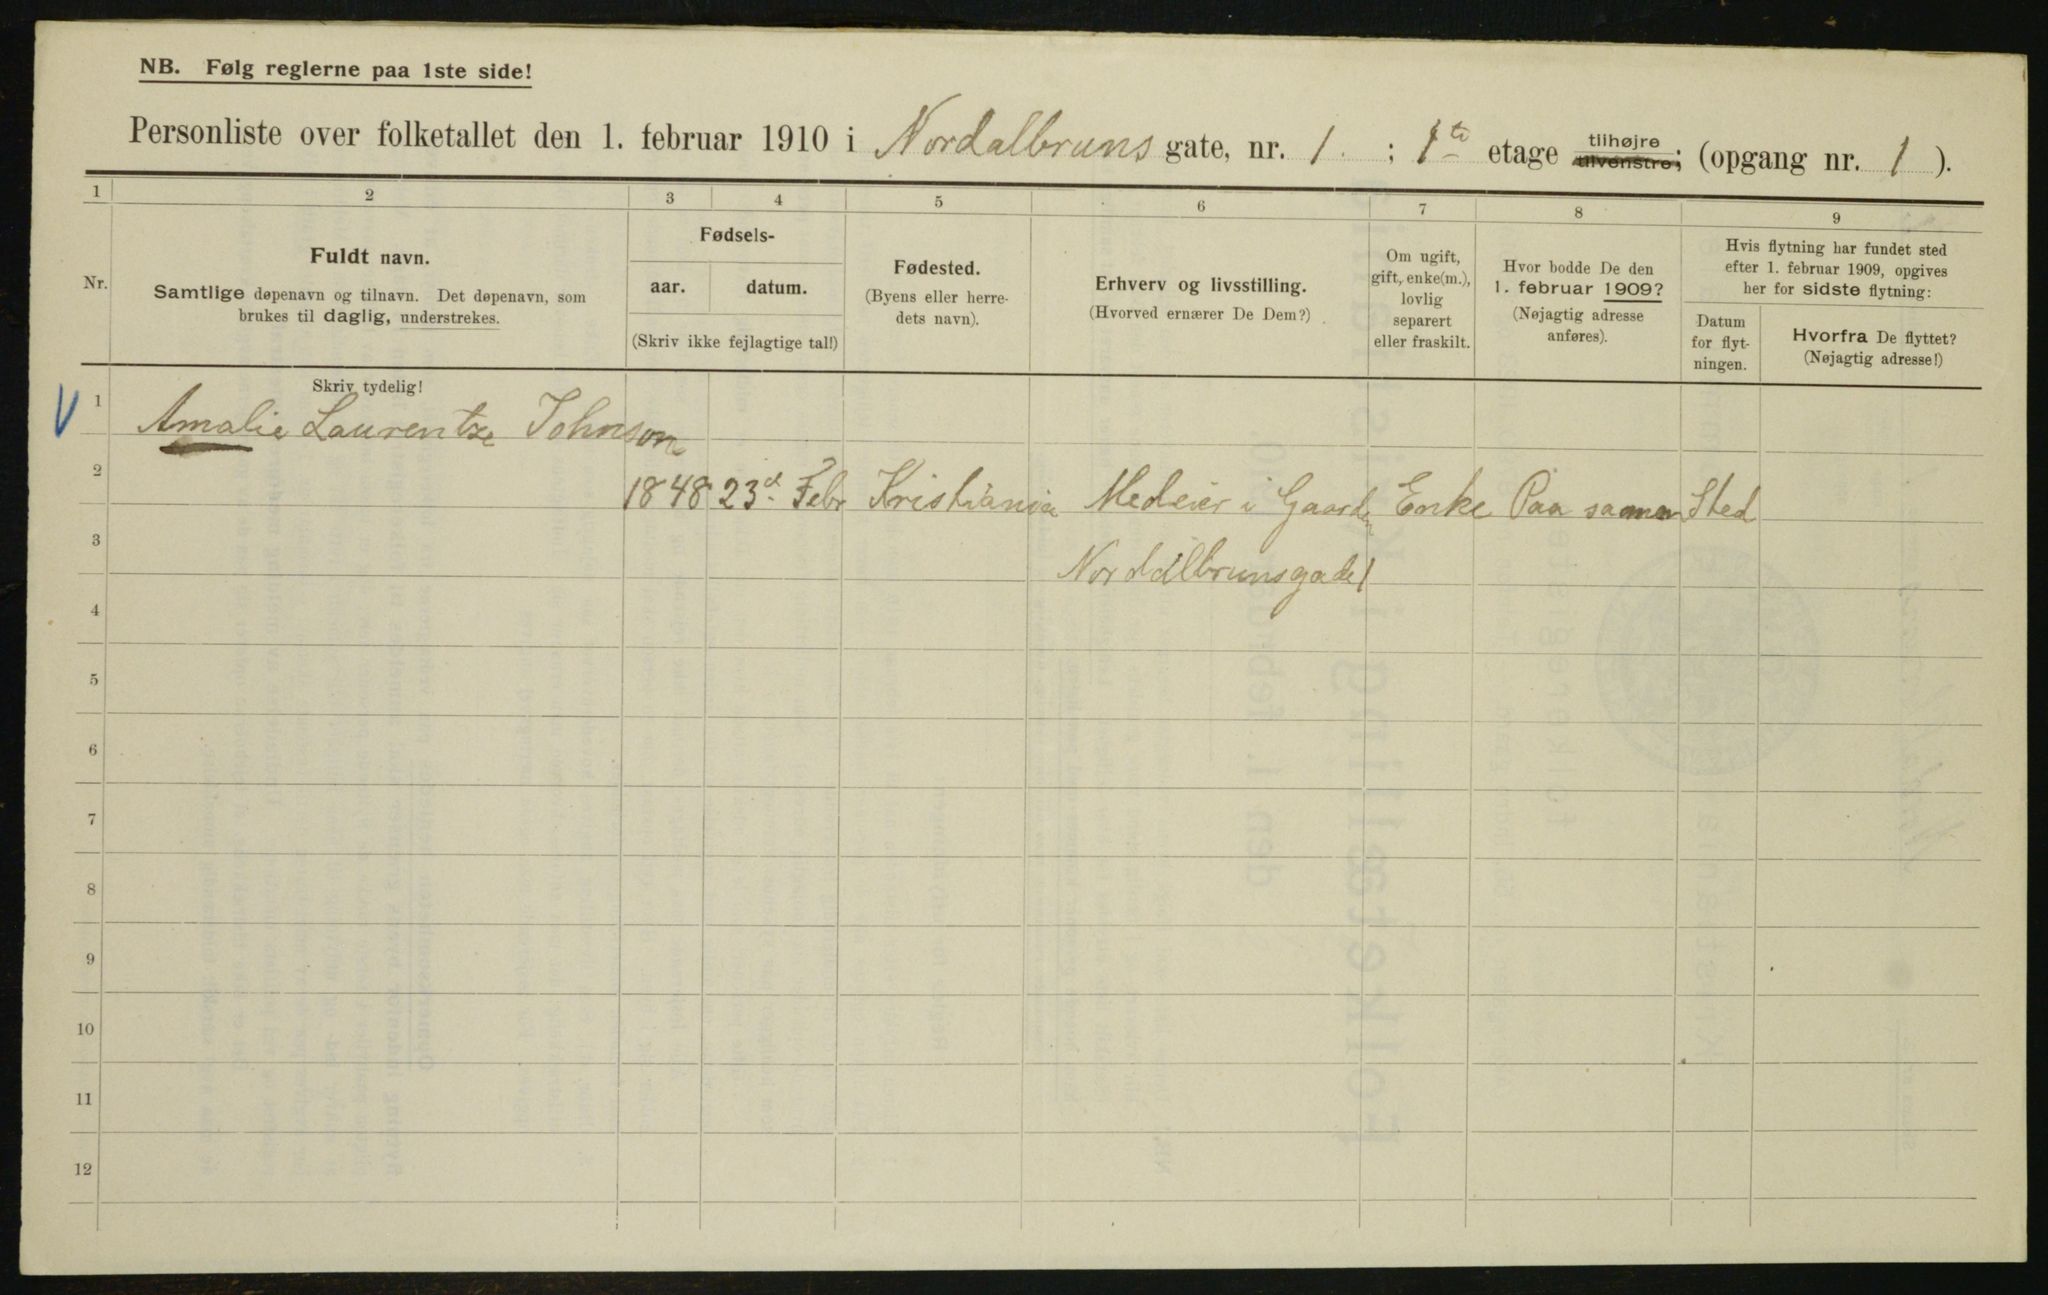 NB. Følg reglerne paa 1ste side!
Personliste over folketallet den 1. februar 1910 i Nordalbruns gate, nr. 1 ; 1ste etage tilhøjre tilvenstre; (opgang nr. 1 ).
1 2 3 4 5 6 7 8 9
Nr.
Fuldt navn.
Samtlige døpenavn og tilnavn. Det døpenavn, som
brukes til daglig, understrekes.
Fødsels-
aar. datum.
(Skriv ikke fejlagtige tal!)
Fødested.
(Byens eller herre-
dets navn).
Erhverv og livsstilling.
(Hvorved ernærer De Dem?)
Om ugift,
gift, enke(m.),
lovlig
separert
eller fraskilt.
Hvor bodde De den
1. februar 1909?
(Nøjagtig adresse
anføres).
Hvis flytning har fundet sted
efter 1. februar 1909, opgives
her for sidste flytning:
Datum
for flyt-
ningen.
Hvorfra De flyttet?
(Nøjagtig adresse!)
Skriv tydelig!
V 1 Amalie Laurentze Johnson
2 1848 23d Febr Kristiania Medeier i Gaarden Enke Paa samme Sted
3 Nordalbrunsgade 1
4
5
6
7
8
9
10
11
12